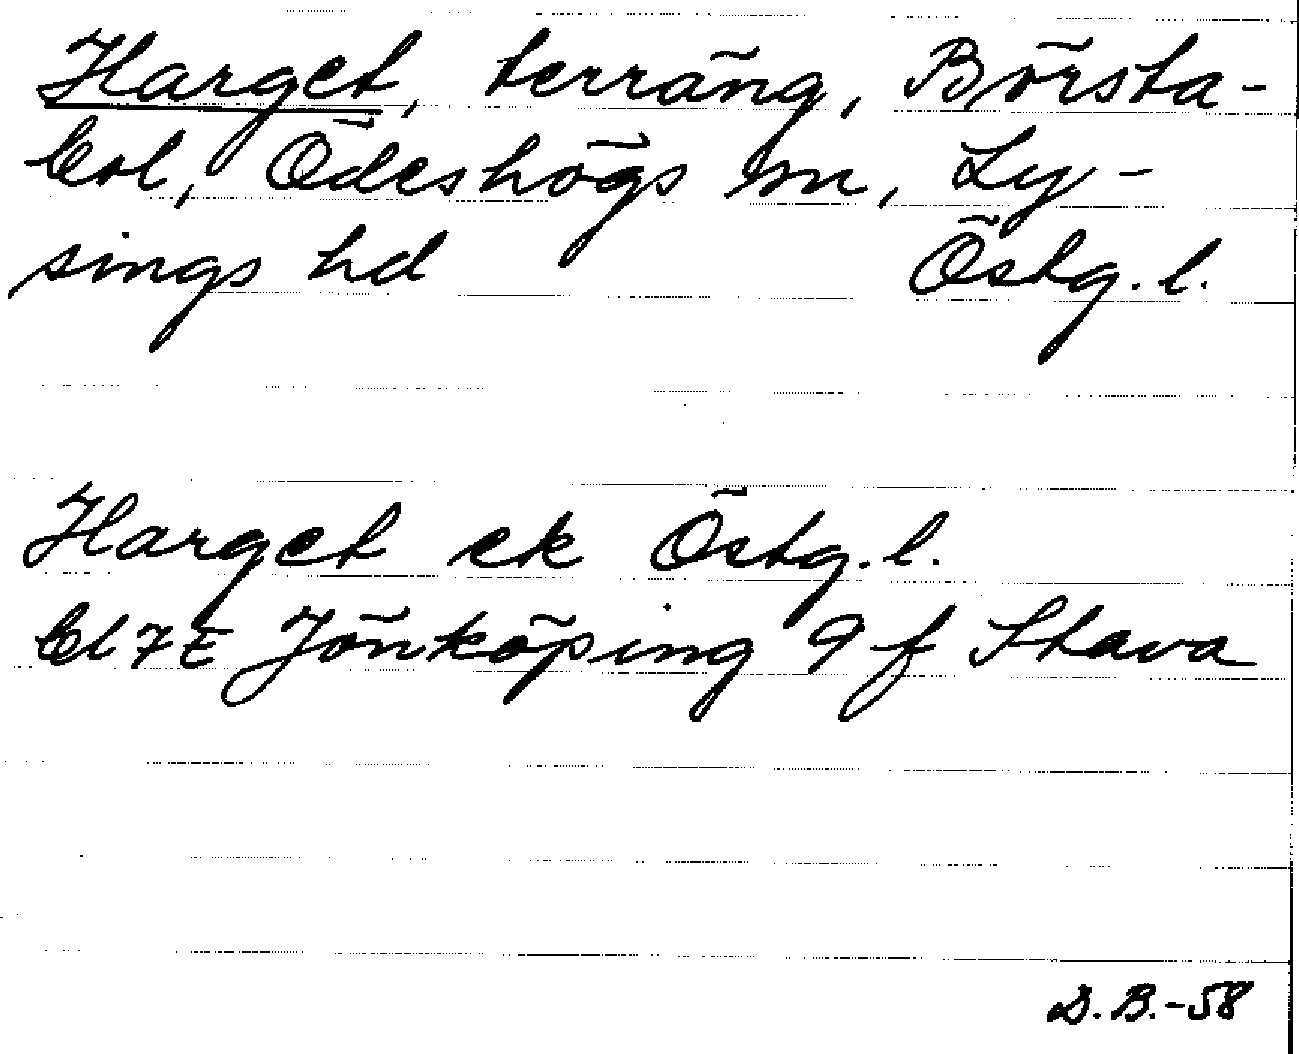 Harget, terräng, Börsta-
bol, Ödeshögs sn, Ly-
sings hd Östg. l.
Harget ek Östg. l.
Bl 7E Jönköping 9 f Stava
D. B. -58